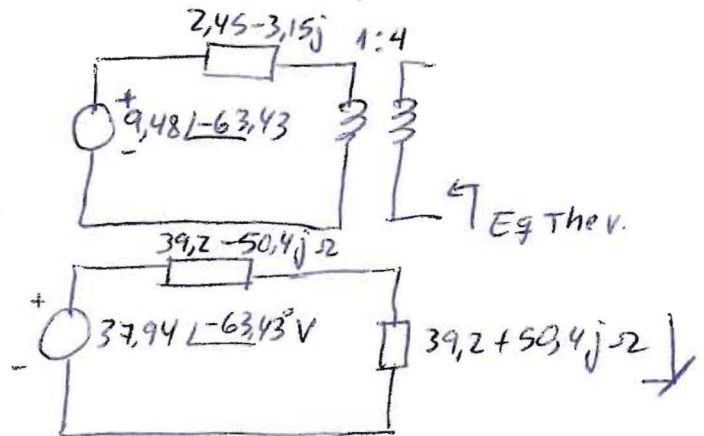 2,45-3,15j 1:4
+
9,48∠-63,43
-
Eq Thev.
39,2-50,4j Ω
+
37,94∠-63,43° V
39,2+50,4j Ω
-